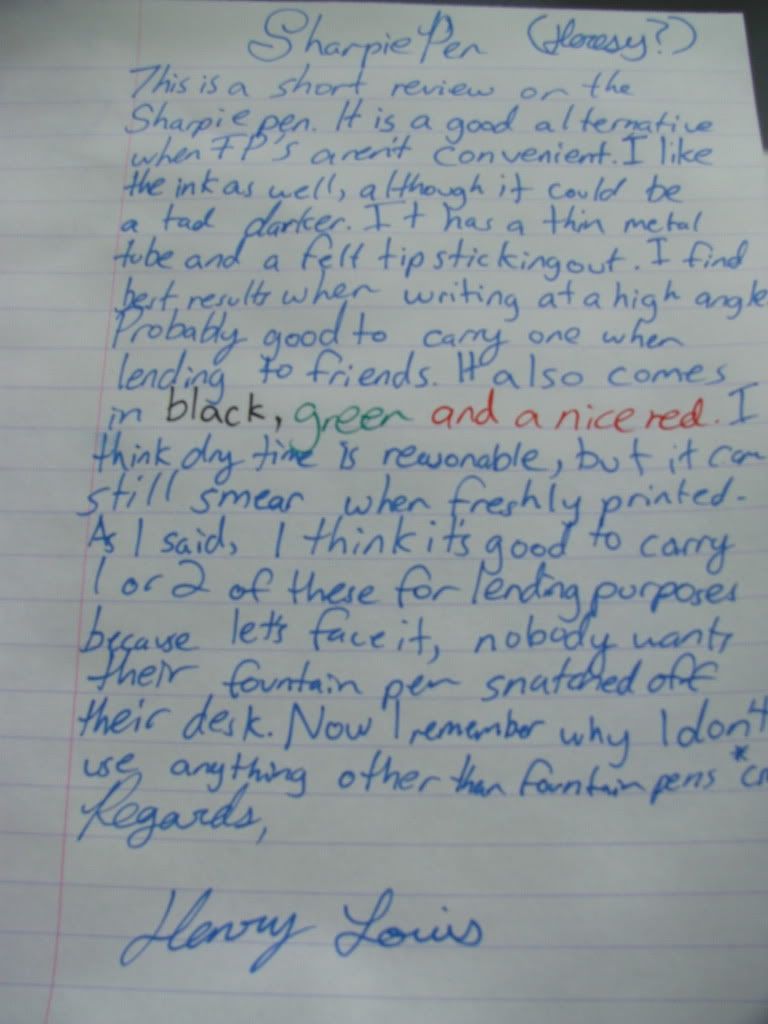 Sharpie Pen (Heresy?)
This is a short review on the
Sharpie pen. It is a good alternative
when FP's aren't convenient. I like
the ink as well, although it could be
a tad darker. It has a thin metal
tube and a felt tip sticking out. I find
best results when writing at a high angle
Probably good to carry one when
lending to friends. It also comes
in black, green and a nice red. I
think dry time is reasonable, but it can
still smear when freshly printed.
As I said, I think it's good to carry
1 or 2 of these for lending purposes
because let's face it, nobody wants
their fountain pen snatched off
their desk. Now I remember why I don't
use anything other than fountain pens *
Regards,
Henry Louis